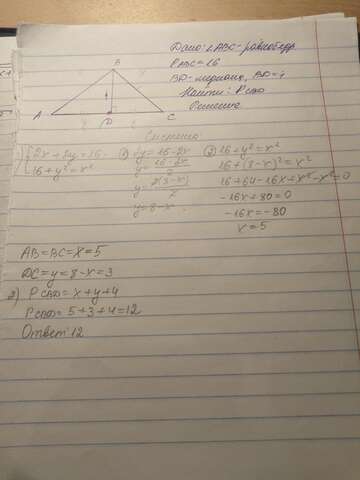 Дано: △ABC - равнобедр.
PABC=16
BD-медиана, BD=4
Найти: PCBD
Решение
B
A
D
C
Система
1) {2x+2y=16
16+y²=x²
2) 2y=16-2x
y=16-2x/2
y=2(8-x)/2
y=8-x
3) 16+y²=x²
16+(8-x)²=x²
16+64-16x+x²-x²=0
-16x+80=0
-16x=-80
x=5
AB=BC=x=5
DC=y=8-x=3
2) PCBD=x+y+4
PCBD=5+3+4=12
Ответ: 12